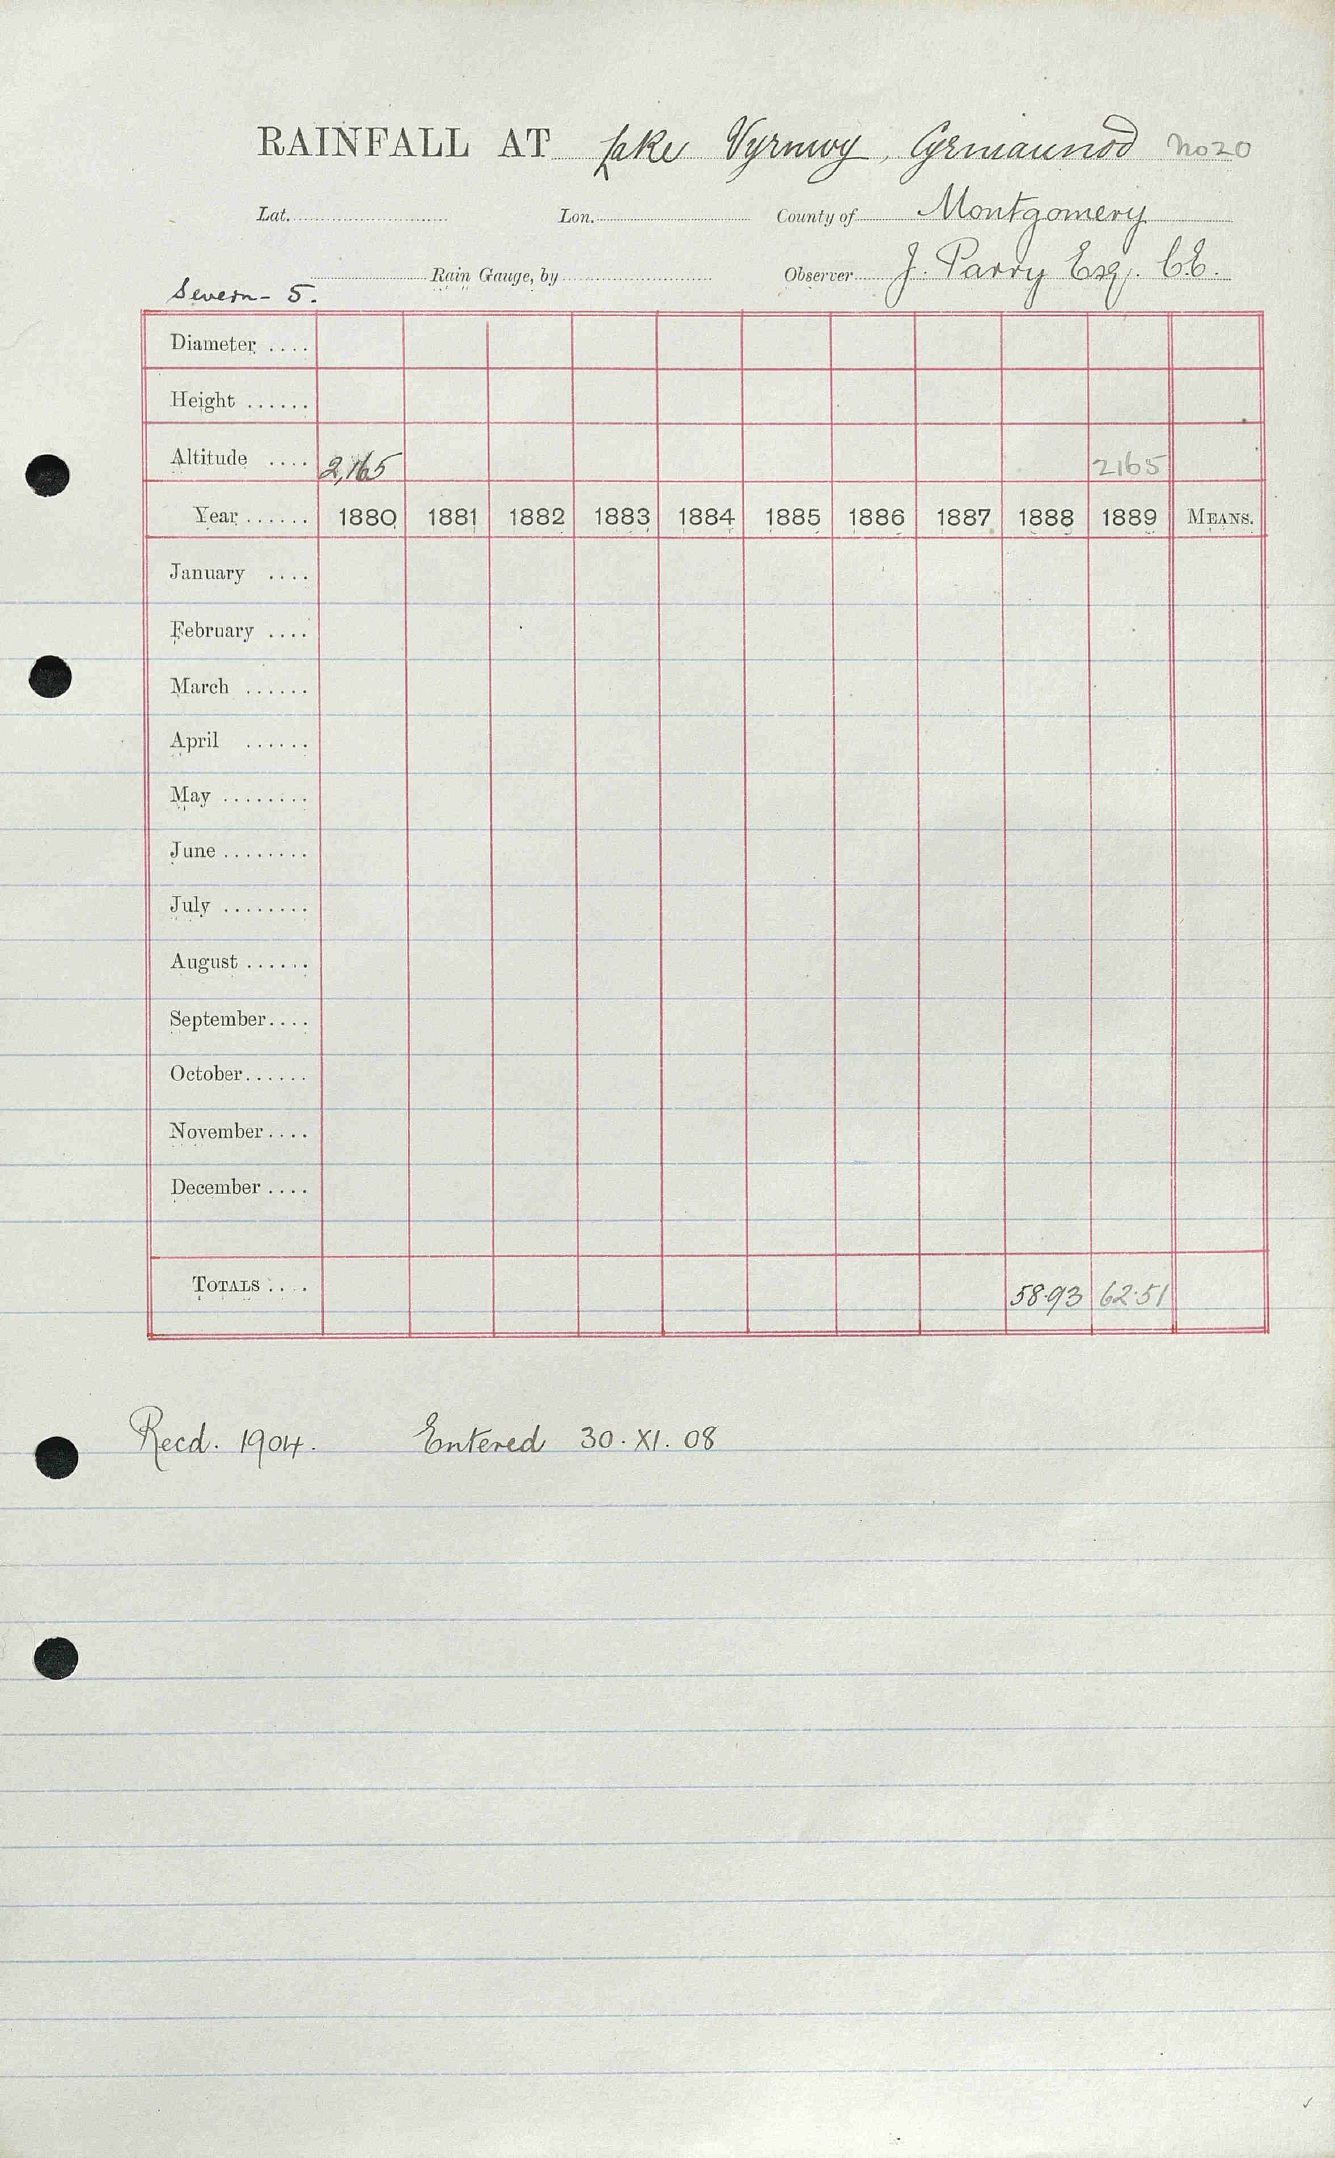 RAINFALL AT Lake Vyrnwy, Cyrniaunod No 20
Lat. Lon. County of Montgomery
Rain Gauge, by Observer J. Parry Esq. C.E.
Severn - 5.
Diameter ....
Height ......
Altitude .... 2,165 2165
Year ...... 1880 1881 1882 1883 1884 1885 1886 1887 1888 1889 MEANS.
January ....
February ....
March ......
April ......
May ........
June ........
July ........
August ......
September....
October......
November....
December....
TOTALS .... 58.93 62.51
Recd. 1904. Entered 30. XI. 08